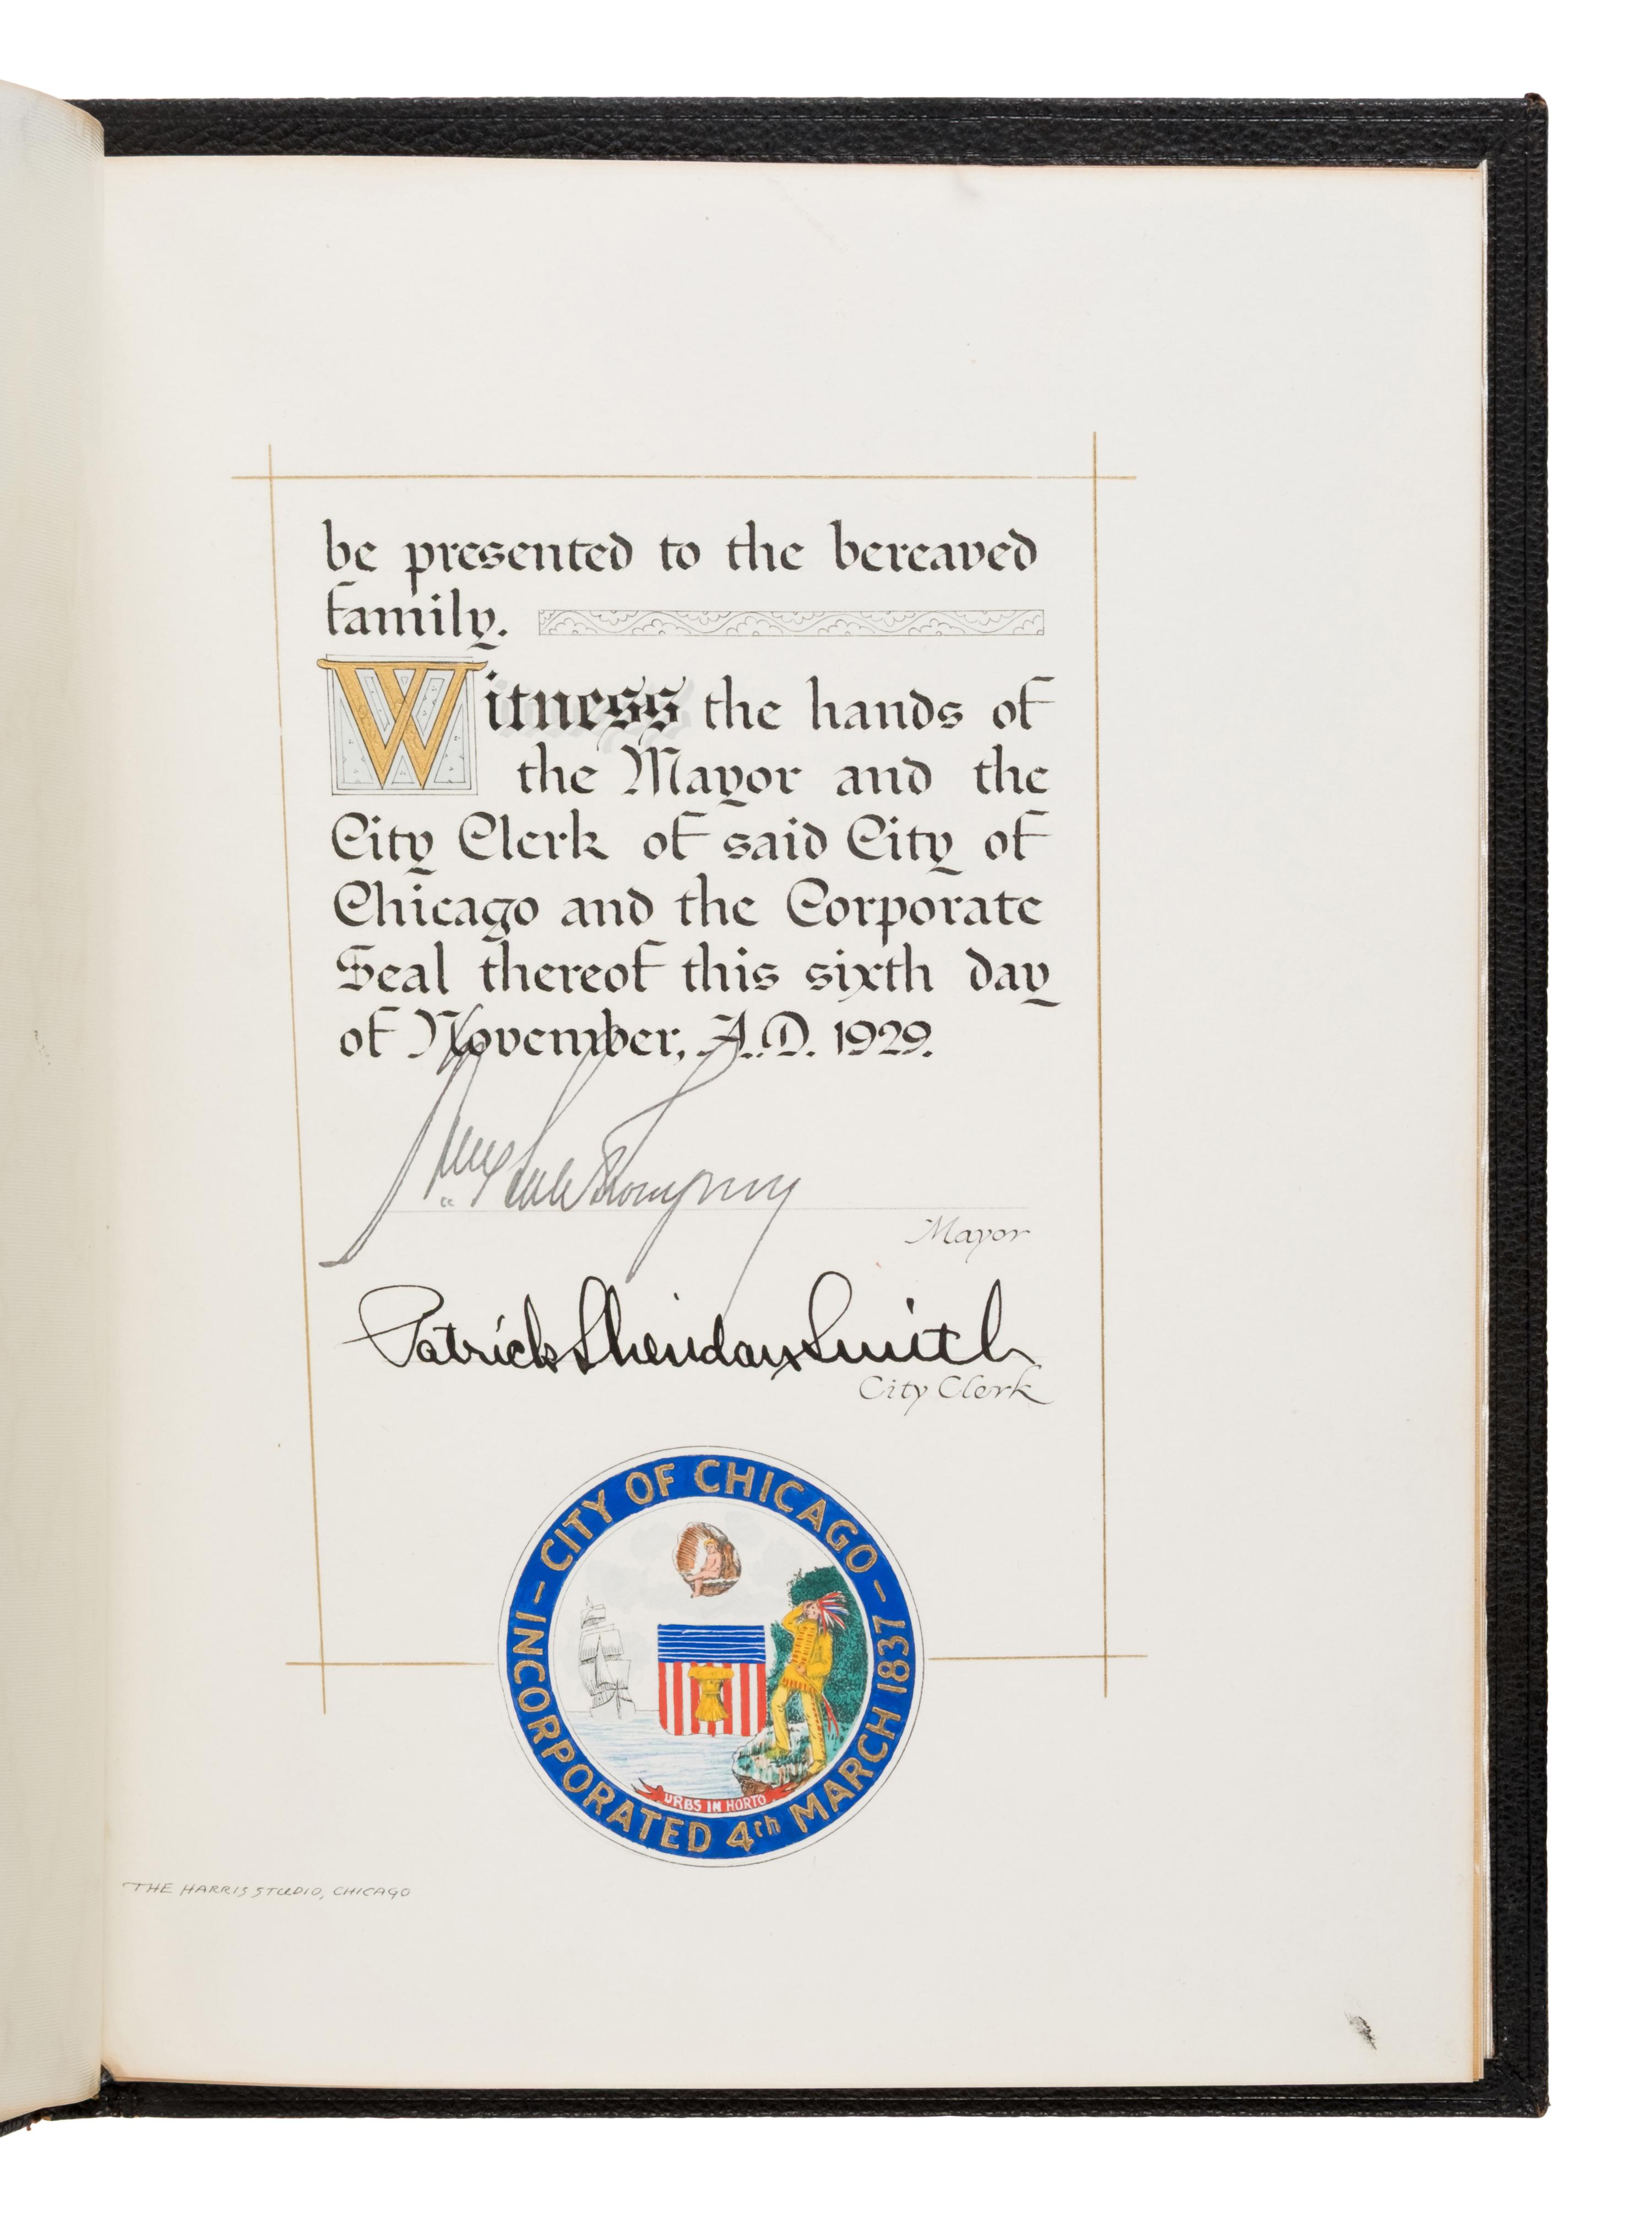 be presented to the bereaved
family.
Witness the hands of
the Mayor and the
City Clerk of said City of
Chicago and the Corporate
Seal thereof this sixth day
of November, A.D. 1929.
Mayor
Patrick Sheridan Smith
City Clerk
- CITY OF CHICAGO -
INCORPORATED 4th MARCH 1837
URBS IN HORTO
THE HARRIS STUDIO, CHICAGO